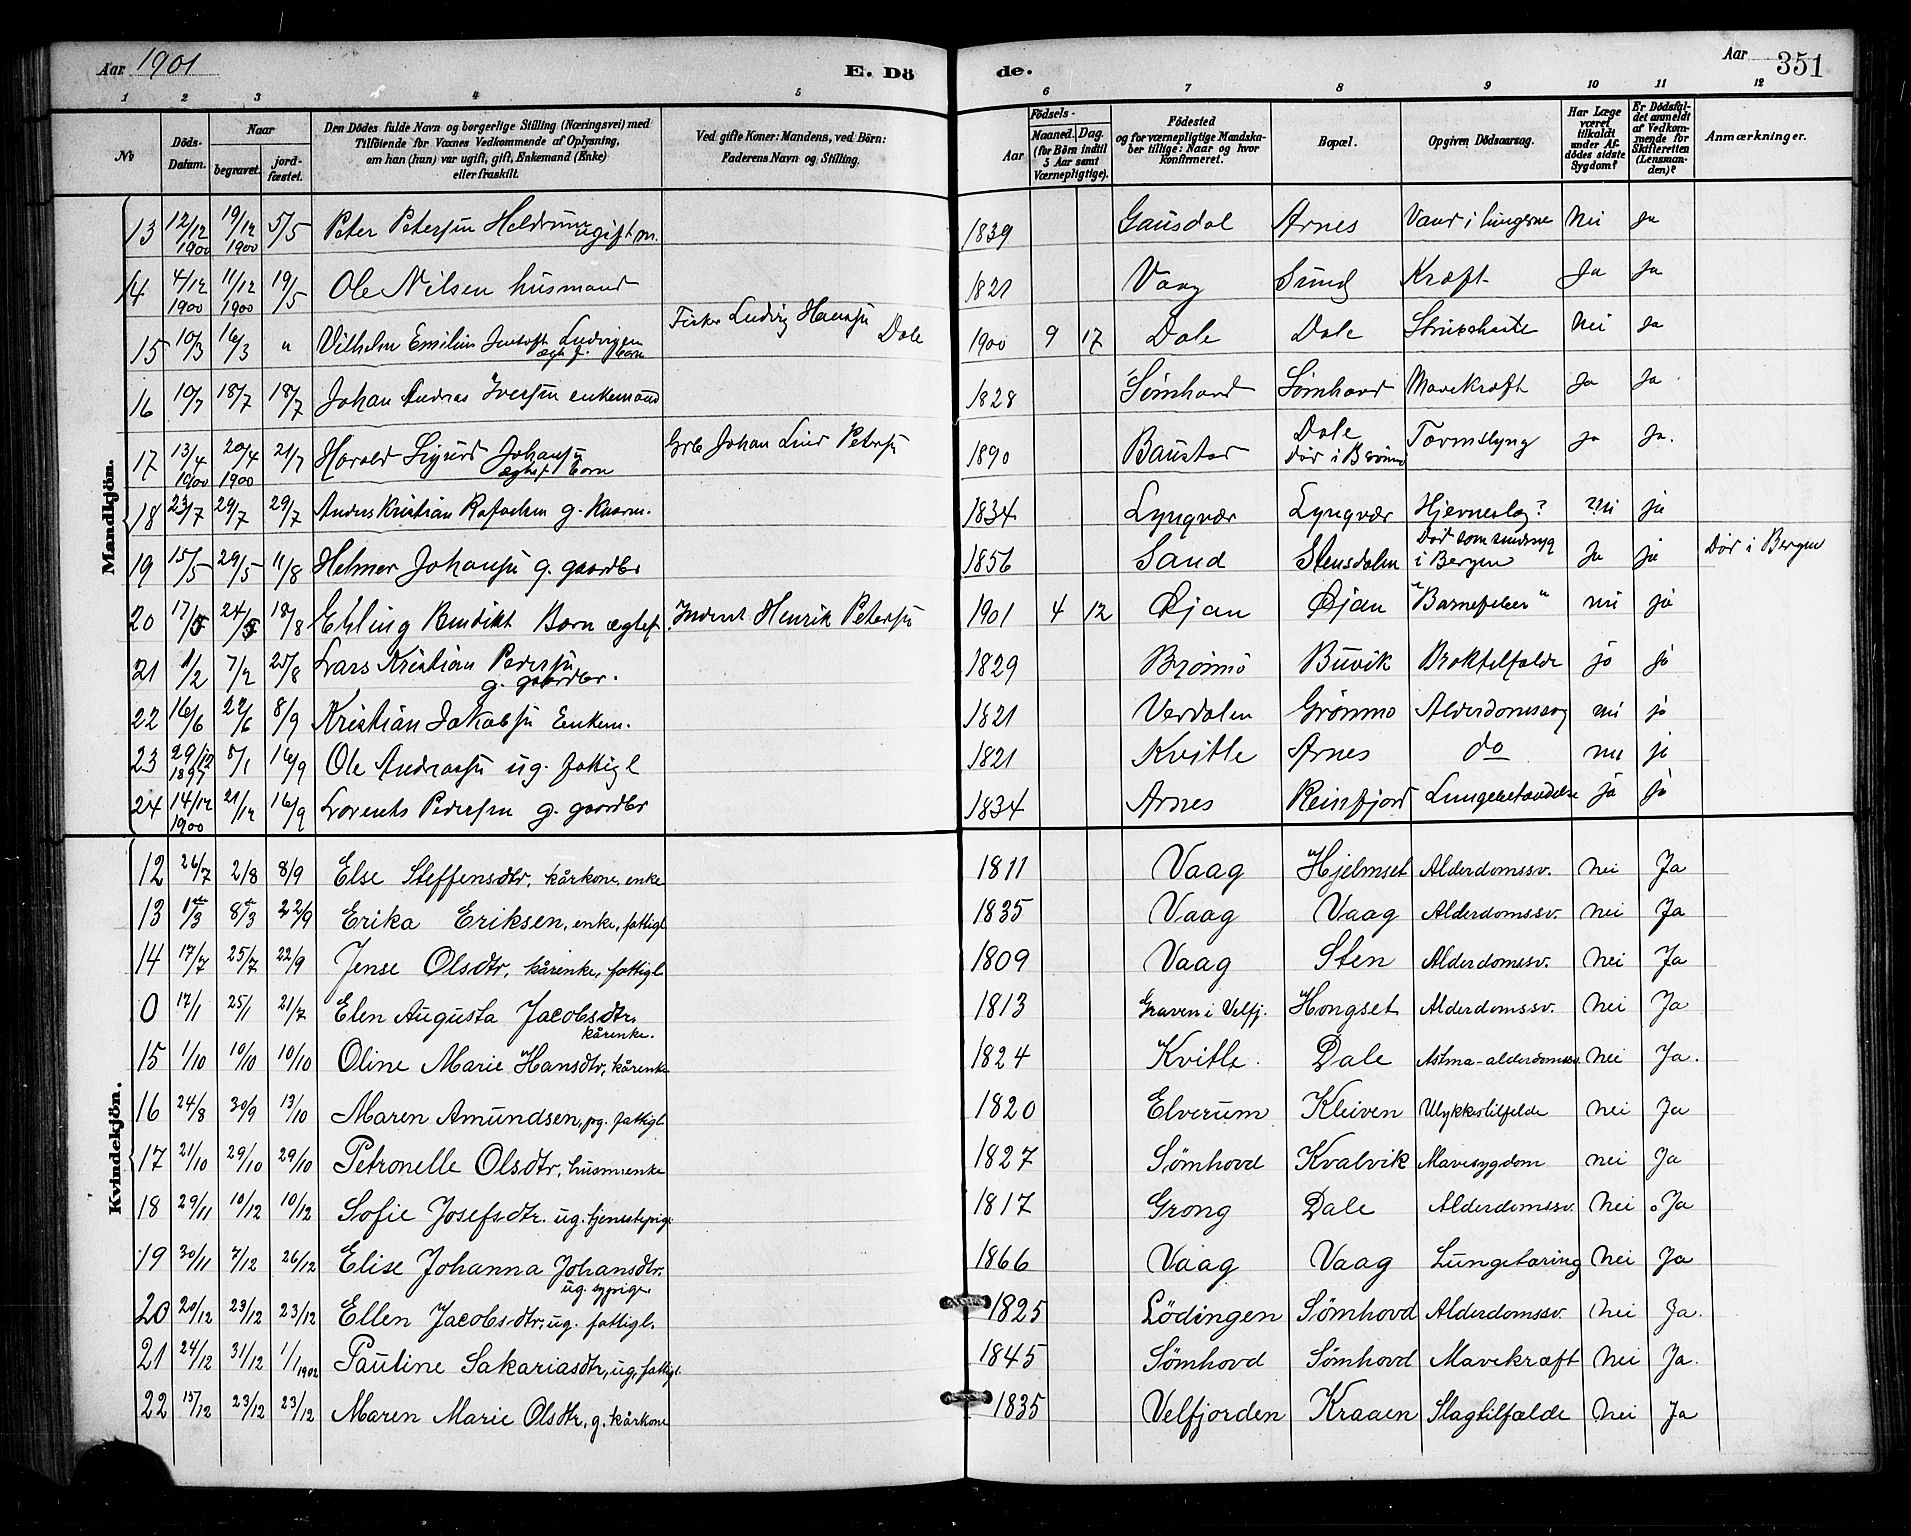 Aar 1901
E. Dö
de.
Aar 351
1 2 3 4 5 6 7 8 9 10 11 12
№
Döds-Datum.
Naar
begravet.
jord-fæstet.
Den Dödes fulde Navn og borgerlige Stilling (Næringsvei) med
Tilföiende for Voxnes Vedkommende af Oplysning,
om han (hun) var ugift, gift, Enkemand (Enke)
eller fraskilt.
Ved gifte Koner: Mandens, ved Börn:
Faderens Navn og Stilling.
Födsels-
Aar
Maaned. Dag.
(for Börn indtil
5 Aar samt
Værnepligtige).
Födested
og for værnepligtige Mandska-
ber tillige: Naar og hvor
konfirmeret.
Bopæl.
Opgiven Dödsaarsag.
Har Læge
været
tilkaldt
under Af-
dödes sidste
Sygdom?
Er Dödsfal-
det anmeldt
af Vedkom-
mende for
Skifteretten
(Lensman-
den)?
Anmærkninger.
Mandkjön.
13 12/12 1900 19/12 1900 5/5 Peter Petersen gift m. 1839 Gausdal Arnes Vand i lungerne Nei Ja
14 4/12 1900 11/12 1900 19/5 Ole Nilsen husmand 1821 Vaag Sund Kræft Ja Ja
15 10/3 16/3 " Vilhelm Emilius Ludvigsen ægtef. Barn Fisker Ludvig Hansen Dale 1900 9 17 Dale Dale Nei Ja
16 10/7 18/7 18/7 Johan Andreas Iversen enkemand 1828 Sømhovd Sømhovd Mavekræft Ja Ja
17 13/4 1900 20/4 1900 21/7 Harald Sigurd Johansen ægtef. Barn Grb. Johan Petersen 1890 Baustad Dale Død i Brønnø Tarmslyng ja Ja.
18 23/7 29/7 29/7 Anders Kristian Rafaelsen g. 1834 Lyngvær Lyngvær Hjerneslag? nei ja
19 15/5 29/5 11/8 Helmer Johansen g. gaardbr 1856 Sand Stensdalen Død som sindssyg i Bergen Ja ja Død i Bergen
20 17/5 24/5 18/8 Ehling Benedikt Barn ægtef. Inderst Henrik Petersen 1901 4 12 Øjan Øjan "Barnefeber" nei ja
21 1/2 7/2 25/8 Lars Kristian Pedersen g. gaardbr. 1829 Brønnø Buvik Braktilfælde ja ja
22 16/6 22/6 8/9 Kristian Jakobsen Enkem. 1821 Verdalen Grønmo Alderdomssvag nei ja
23 29/12 1899 5/1 16/9 Ole Andreassen ug. fattigl 1821 Kvitle Arnes do nei ja
24 14/12 1900 21/12 16/9 Lorents Pedersen g. gaardbr 1834 Arnes Reinfjord Lungebetændelse ja ja
Kvindekjön.
12 26/7 2/8 8/9 Else Steffensdtr, kårkone, enke 1811 Vaag Hjelmset Alderdomssv. Nei Ja
13 1/3 8/3 22/9 Erika Eriksen, enke, fattigl 1835 Vaag Vaag Alderdomssv. Nei Ja
14 17/7 25/7 22/9 Jense Olsdtr, kårenke, fattigl 1809 Vaag Sten Alderdomssv. Nei Ja
0 17/1 25/1 21/7 Elen Augusta Jacobsdtr. kårenke. 1813 Graven i Velfj. Hongset Alderdomssv. Nei Ja
15 1/10 10/10 10/10 Oline Marie Hansdtr, kårenke 1824 Kvitle. Dale Astma-alderdomssv Nei Ja.
16 24/8 30/9 13/10 Maren Amundsen, pg. fattigl 1820 Elverum Kleiven Ulykkestilfelde Nei Ja
17 21/10 29/10 29/10 Petronelle Olsdtr, husm.enke 1827 Sømhovd Kvalvik Mavesygdom nei Ja
18 29/11 10/12 10/12 Sofie Josefsdtr. ug. tjenestepige 1817 Grong Dale Alderdomssv. Nei Ja
19 30/11 7/12 26/12 Elise Johanna Johansdtr. ug. sypige. 1866 Vaag Vaag Lungetæring Nei Ja
20 20/12 23/12 23/12 Ellen Jacobsdtr, ug. fattigl. 1825 Lödingen Sømhovd Alderdomssv. Nei Ja.
21 24/12 31/12 1/1 1902 Pauline Sakariasdtr, ug, fattigl. 1845 Sømhovd Sømhovd Mavekræft Nei Ja.
22 15/12 23/12 23/12 Maren Marie Olsdtr, g. kårkone 1835 Velfjorden Kraaen Slagtilfælde Nei Ja